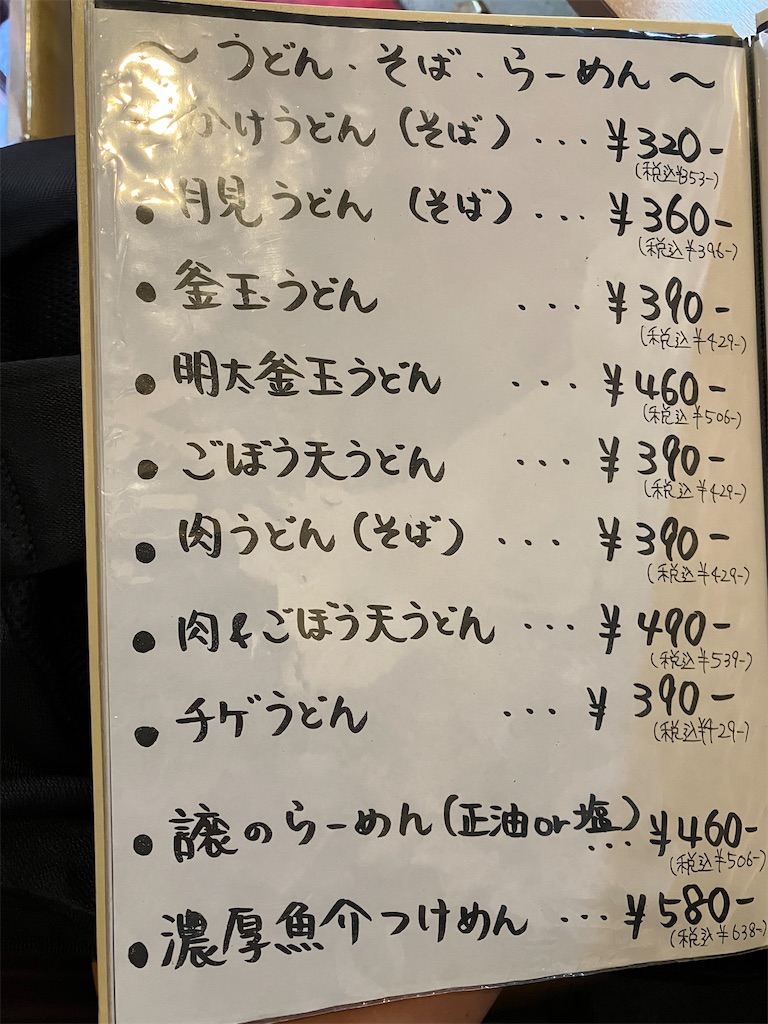 ～うどん・そば・らーめん～
かけうどん（そば）...¥320-
（税込¥353-）
●月見うどん（そば）...¥360-
（税込¥396-）
●釜玉うどん...¥390-
（税込¥429-）
●明太釜玉うどん...¥460-
（税込¥506-）
●ごぼう天うどん...¥390-
（税込¥429-）
●肉うどん（そば）...¥390-
（税込¥429-）
●肉&ごぼう天うどん...¥490-
（税込¥539-）
●チゲうどん...¥390-
（税込¥429-）
●譲のらーめん（正油or塩）...¥460-
（税込¥506-）
●濃厚魚介つけめん...¥580-
（税込¥638-）